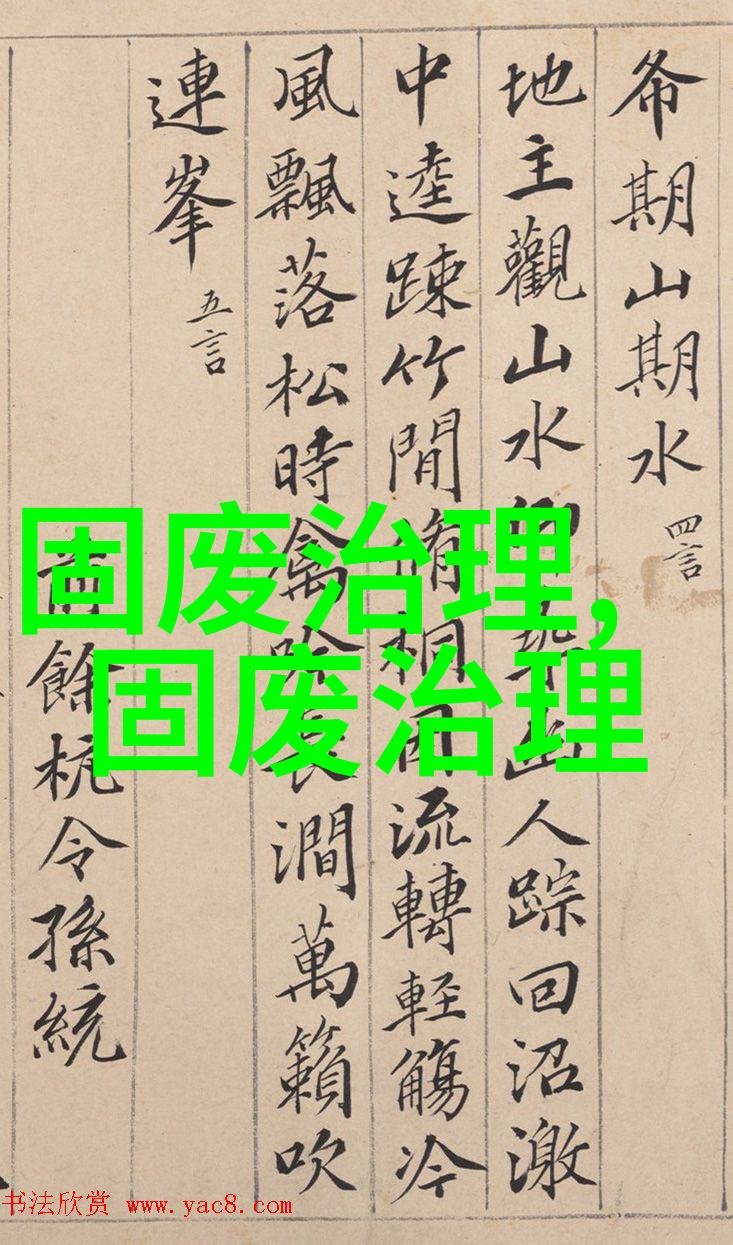 希期山期水 四言
地主觀山水仰尋幽人踪回沼激
中逵踈竹間脩桐因流轉輕觴冷
風飄落松時禽吟長澗萬籟吹
連峯 五言
前餘杭令孫統
固废治理,
固废治理
书法欣赏 www.yac8.com